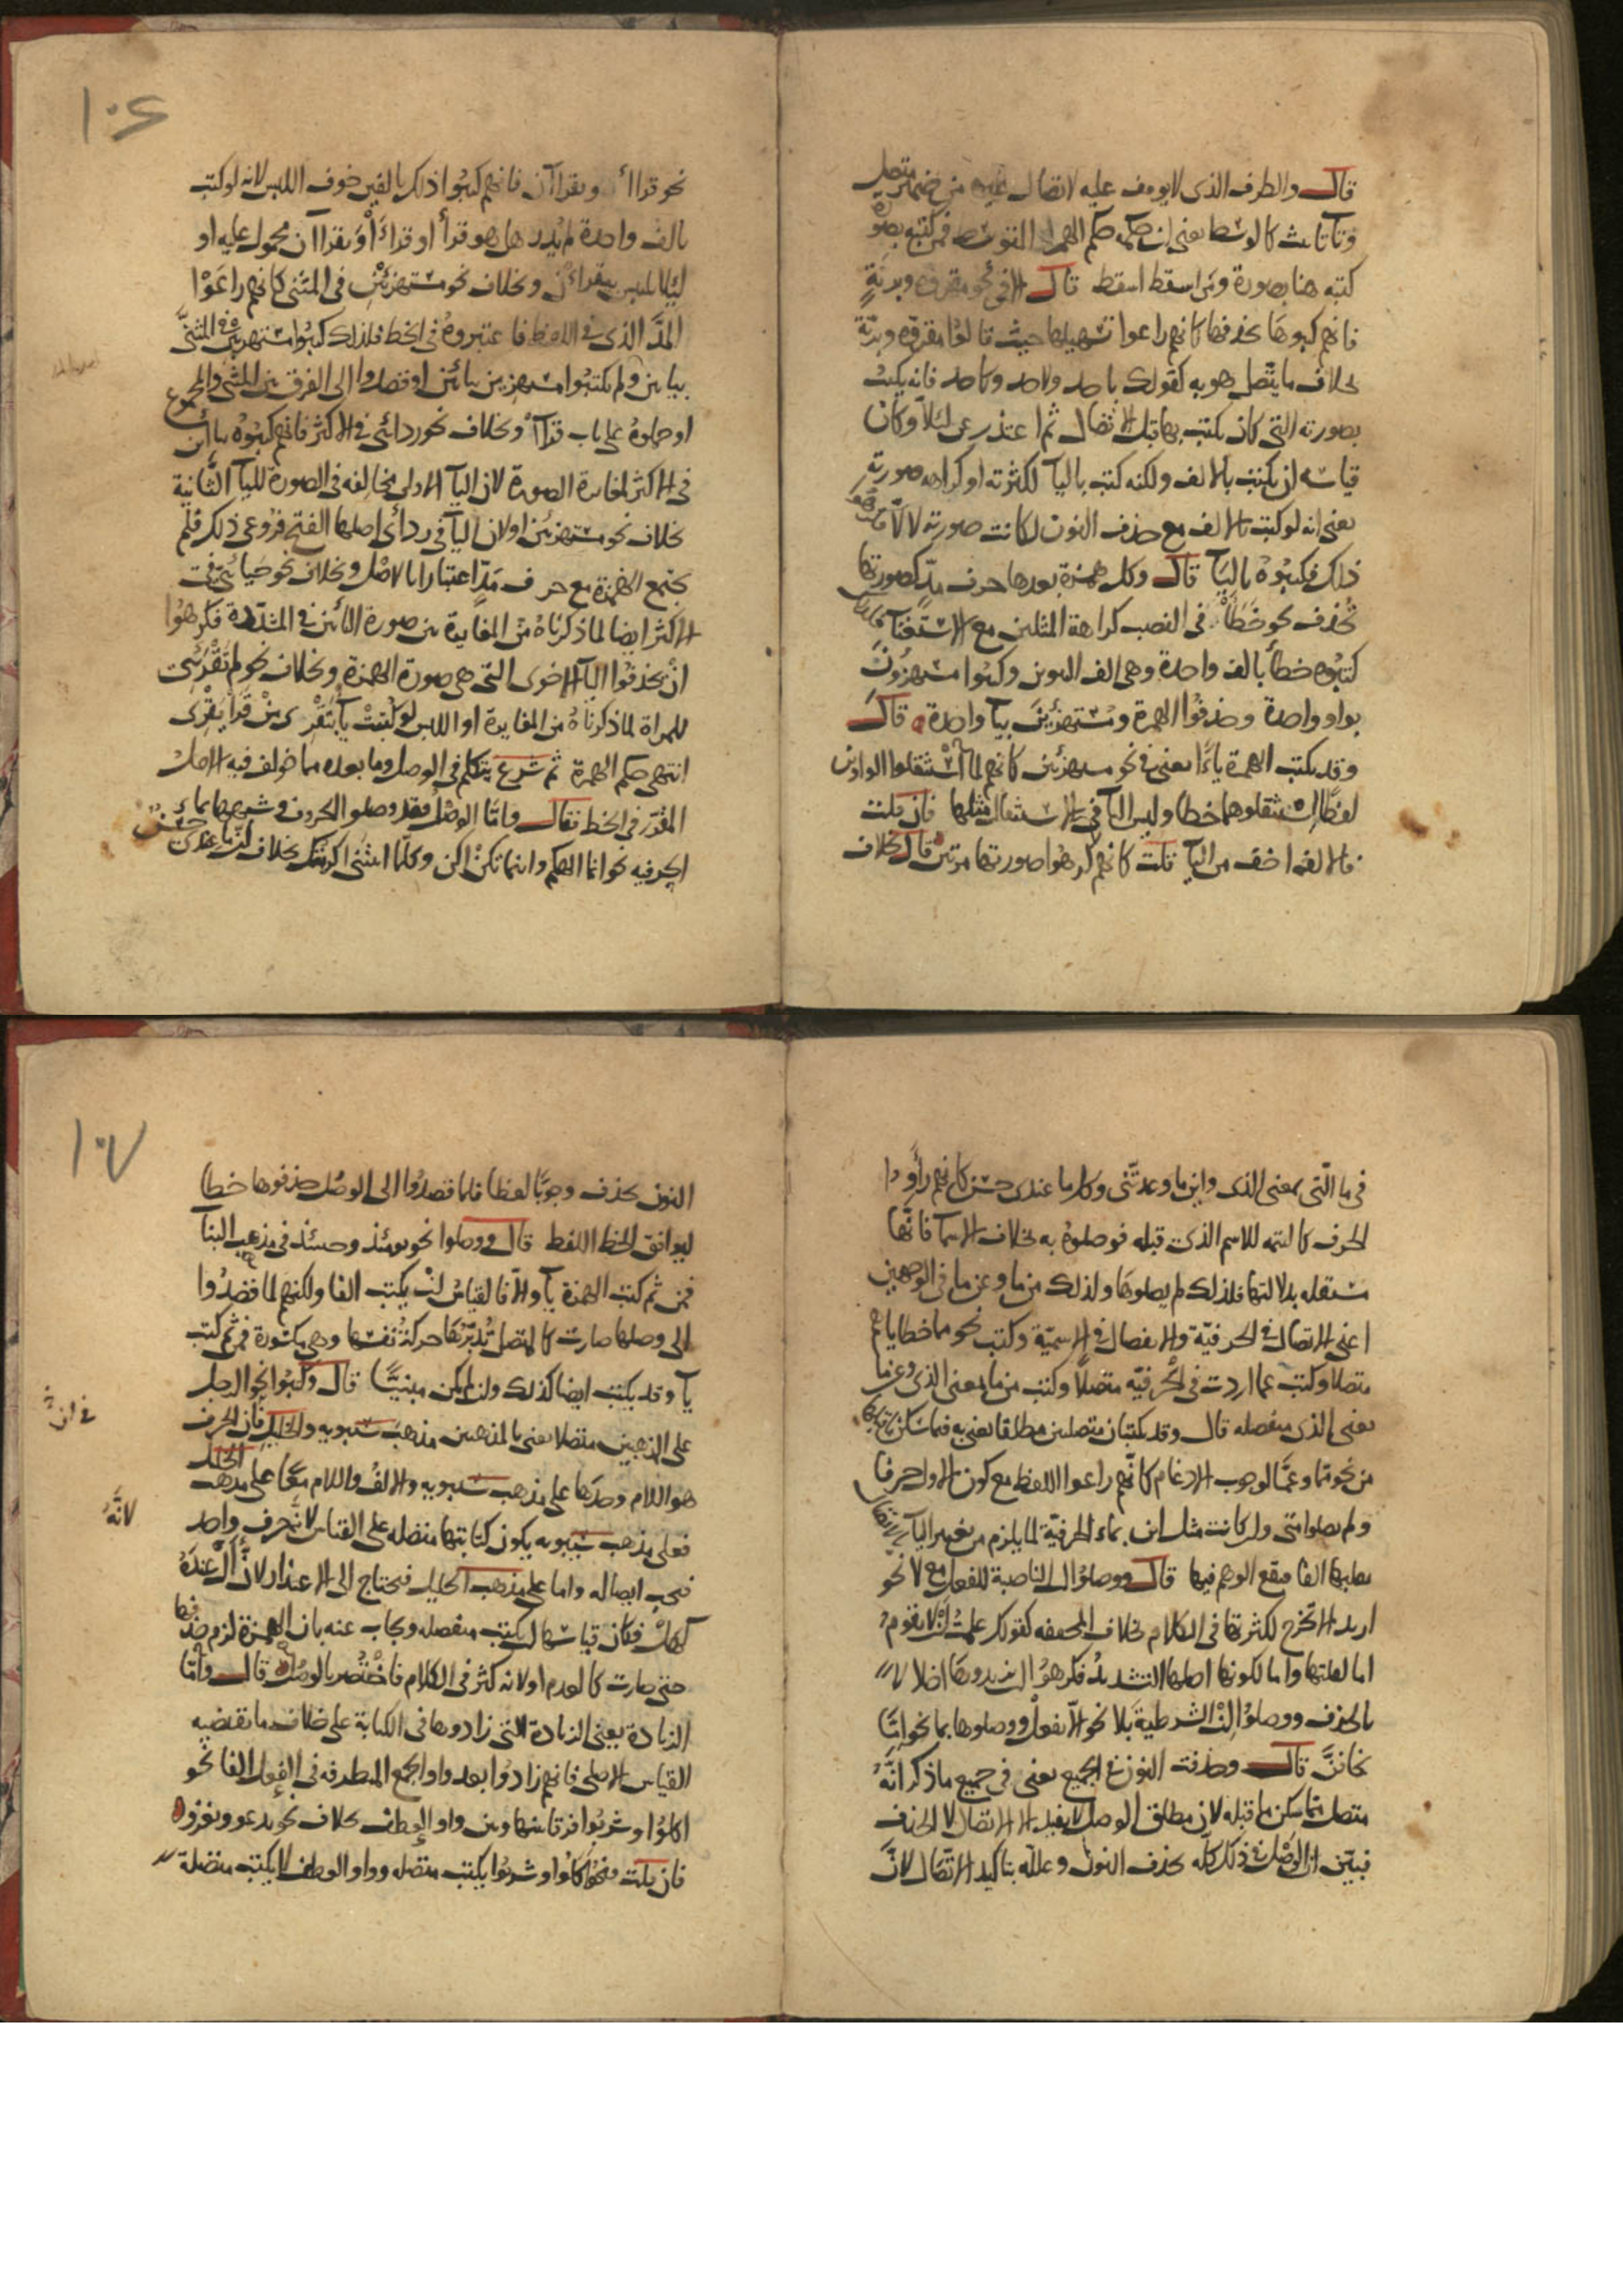 قال والطرف الذى لا يوقف عليه لاتصال غيره من ضمير متصل
وتا تانيث كالوسط يعنى ان حكمه حكم الهمزة المتوسطة فمن كتبه بصورة
كتبه هنا بصورة ومن اسقط اسقط قال الا فى نحو مقروة وبرية
فانهم كتبوها بحذفها كانهم راعوا تسهيلها حيث قالوا مقروّة وبريّة
بخلاف ما يتصل هو به كقولك باحد ولاحد وكاحد فانه يكتب
بصورته التى كان يكتب بها قبل الاتصال ثم اعتذر عن لئلا وكان
قياسه ان يكتب بالالف ولكنه كتب باليا لكثرته او كراهه صورته
يعنى انه لو كتب بالالف مع حذف النون لكانت صورته لالا فكرهوا
ذلك فكتبوه باليا قال وكل همزة بعدها حرف مدّ كصورتها
تحذف نحو خطأ فى النصب كراهة المثلين مع الاستغنا
كتبوه خطأ بالف واحدة وهى الف التنوين وكتبوا مستهزؤن
بواو واحدة وحذفوا الهمزة ومستهزئين بيا واحدة قال
وقد يكتب الهمزة ياءً يعنى فى نحو مستهزئين كانهم لما استثقلوا الواوين
لفظا استثقلوهما خطا وليس اليا فى الاستثقال مثلها فان قلت
فالالف اخف من اليا قلت كانهم كرهوا صورتها مرتين قال بخلاف
نحو قراا ويقراان فانهم كتبوا ذلك بالفين خوف اللبس لانه لو كتب
بالف واحدة لم يُدر هل هو قرأ او قراءَا أو يقراان محمول عليه او
لئلا يلتبس بيقراءْن وبخلاف نحو مستهزئين فى المثنى كانهم راعَوْا
المدّ الذى فى اللفظ فاعتبروه فى الخط فلذلك كتبوا مستهزيين فى المثنى
بيايين ولم يكتبوا مستهزين بيائين او قصدوا الى الفرق بين المثنى والمجموع
او حملوه على باب قراآ وبخلاف نحو ردائى فى الاكثر فانهم كتبوه بيائين
فى الاكثر لمغايرة الصورة لان اليآ الاولى مخالفة فى الصورة لليآ الثانية
بخلاف نحو مستهزئين او لان اليآ فى ردائى اصلها الفتح فروعى ذلك فلم
يجتمع الهمزة مع حرف مدّ اعتبارا بالاصل وبخلاف نحو حنائىّ فى
الاكثر ايضا لما ذكرناه من المغايرة بين صورة اليائين فى المشدّدة فكرهوا
انْ يحذفوا اليآ الاخرى التى هى صورة الهمزة وبخلاف نحو لم تقرئى
للمراة لما ذكرناه من المغايرة او اللبس لو كتبت بيآ بتَقْرِى من قَرَا يَقْرِى
انتهى حكم الهمزة ثم شرع يتكلم فى الوصل وما بعده مما خولف فيه الاصل
المقدّر فى الخط فقال واما الوصل فقد وصلوا الحروف وشبهها بما
الحرفيه نحو انما الهكم واينما تكن اكن وكلما اتيتنى اكرمتك بخلاف ان ما عندى حسن
فى ما الّتى بمعنى الذى واين ما وعدتنى وكل ما عندى حسن كانهم رأوا
الحرف كالتتمه للاسم الذى قبله فوصلوه به بخلاف الاسما فانها
مستقله بدلالتها فلذلك لم يصلوها وكذلك من ما وعن ما فى الوجهين
اعنى الاتصال فى الحرفيّة والانفصال فى الاسميّة وكتب نحو مما خطاياهم
متصلا وكتب عما اردت فى الحرفيّه متصلًا وكتب من ما بمعنى الذى وعن ما
بمعنى الذى منفصله قال وقد يكتبان متصلين مطلقا يعنى به فيما سكن
من نحو مما وعمّا لوجوب الادغام كانهم راعوا اللفظ مع كون الاول حرفا
ولم يصلوا متى ولو كانت مثل اين بماء الحرفيّة لما يلزم من تغيير اليآ
بقلبها الفا فيقع الوهم فيها قال ووصلوا ال الناصبة للفعل مع لا نحو
اريد الا تخرج لكثرتها فى الكلام بخلاف المخففه كقولك علمت ان لا يقوم
اما لقلتها واما لكونها اصلها التشديد فكرهوا ان يزيدوها اخلالا
بالحذف ووصلوا إنْ الشرطية بلا نحو الّا تفعل ووصلوها بما نحو امّا
تخافنّ قال وحذفت النون فى الجميع يعنى فى جميع ما ذكر انّه
متصل مما سكن ما قبله لان مطلق الوصل لا يفيد الا الاتصال لا الحذف
فبيّن ان الوصل فى ذلك كله بحذف النون وعلله بتاكيد الاتّصال لانّ
النون تحذف وجوبًا لفظا فلما قصدوا الى الوصل حذفوها خطا
ليوافق الخط اللفظ قال ووصلوا نحو يومئذ وحينئذ فى مذهب البنآ
فمن ثم كتبت الهمزة يآ والّا فالقياس ان يكتب الفا ولكنهم لما قصدوا
الى وصلها صارت كالمتصل تُدبّرُها حركة نفسها وهى مكسورة فمن ثم كتب
يآ وقد يكتب ايضا كذلك وان لم يكن مبنيًّا قال وكتبوا نحو الرجل
على المذهبين متصلا يعنى بالمذهبين مذهب سيبويه والخليل فان الحرف
هو اللام وحدها على مذهب سيبويه والالف واللام معًا على مذهب الخليل
فعلى مذهب سيبويه يكون كتابتها متصله على القياس لانه حرف واحد
فيجب ايصاله واما على مذهب الخليل فيحتاج الى الاعتذار لانّ أَل عندَه
كهلْ فكان قياسها ان يكتب منفصله ويجاب عنه بان الهمزة لزم حذفها
حتى صارت كالعدم او لانه كثر فى الكلام فاختصر بالوصل قال وامّا
الزيادة يعنى الزيادة التى زادوها فى الكتابة على خلاف ما يقتضيه
القياس الاصلى فانهم زادوا بعد واو الجمع المتطرفه فى الفعل الفا نحو
اكلوا وشربوا فرقا بينها وبين واو العطف بخلاف نحو يدعو ويغزو
فان قلت فنحو كالوا وشربوا يكتب متصله وواو العطف لا يكتب متصلة
١٠٦
١٠٧
لانّهُ